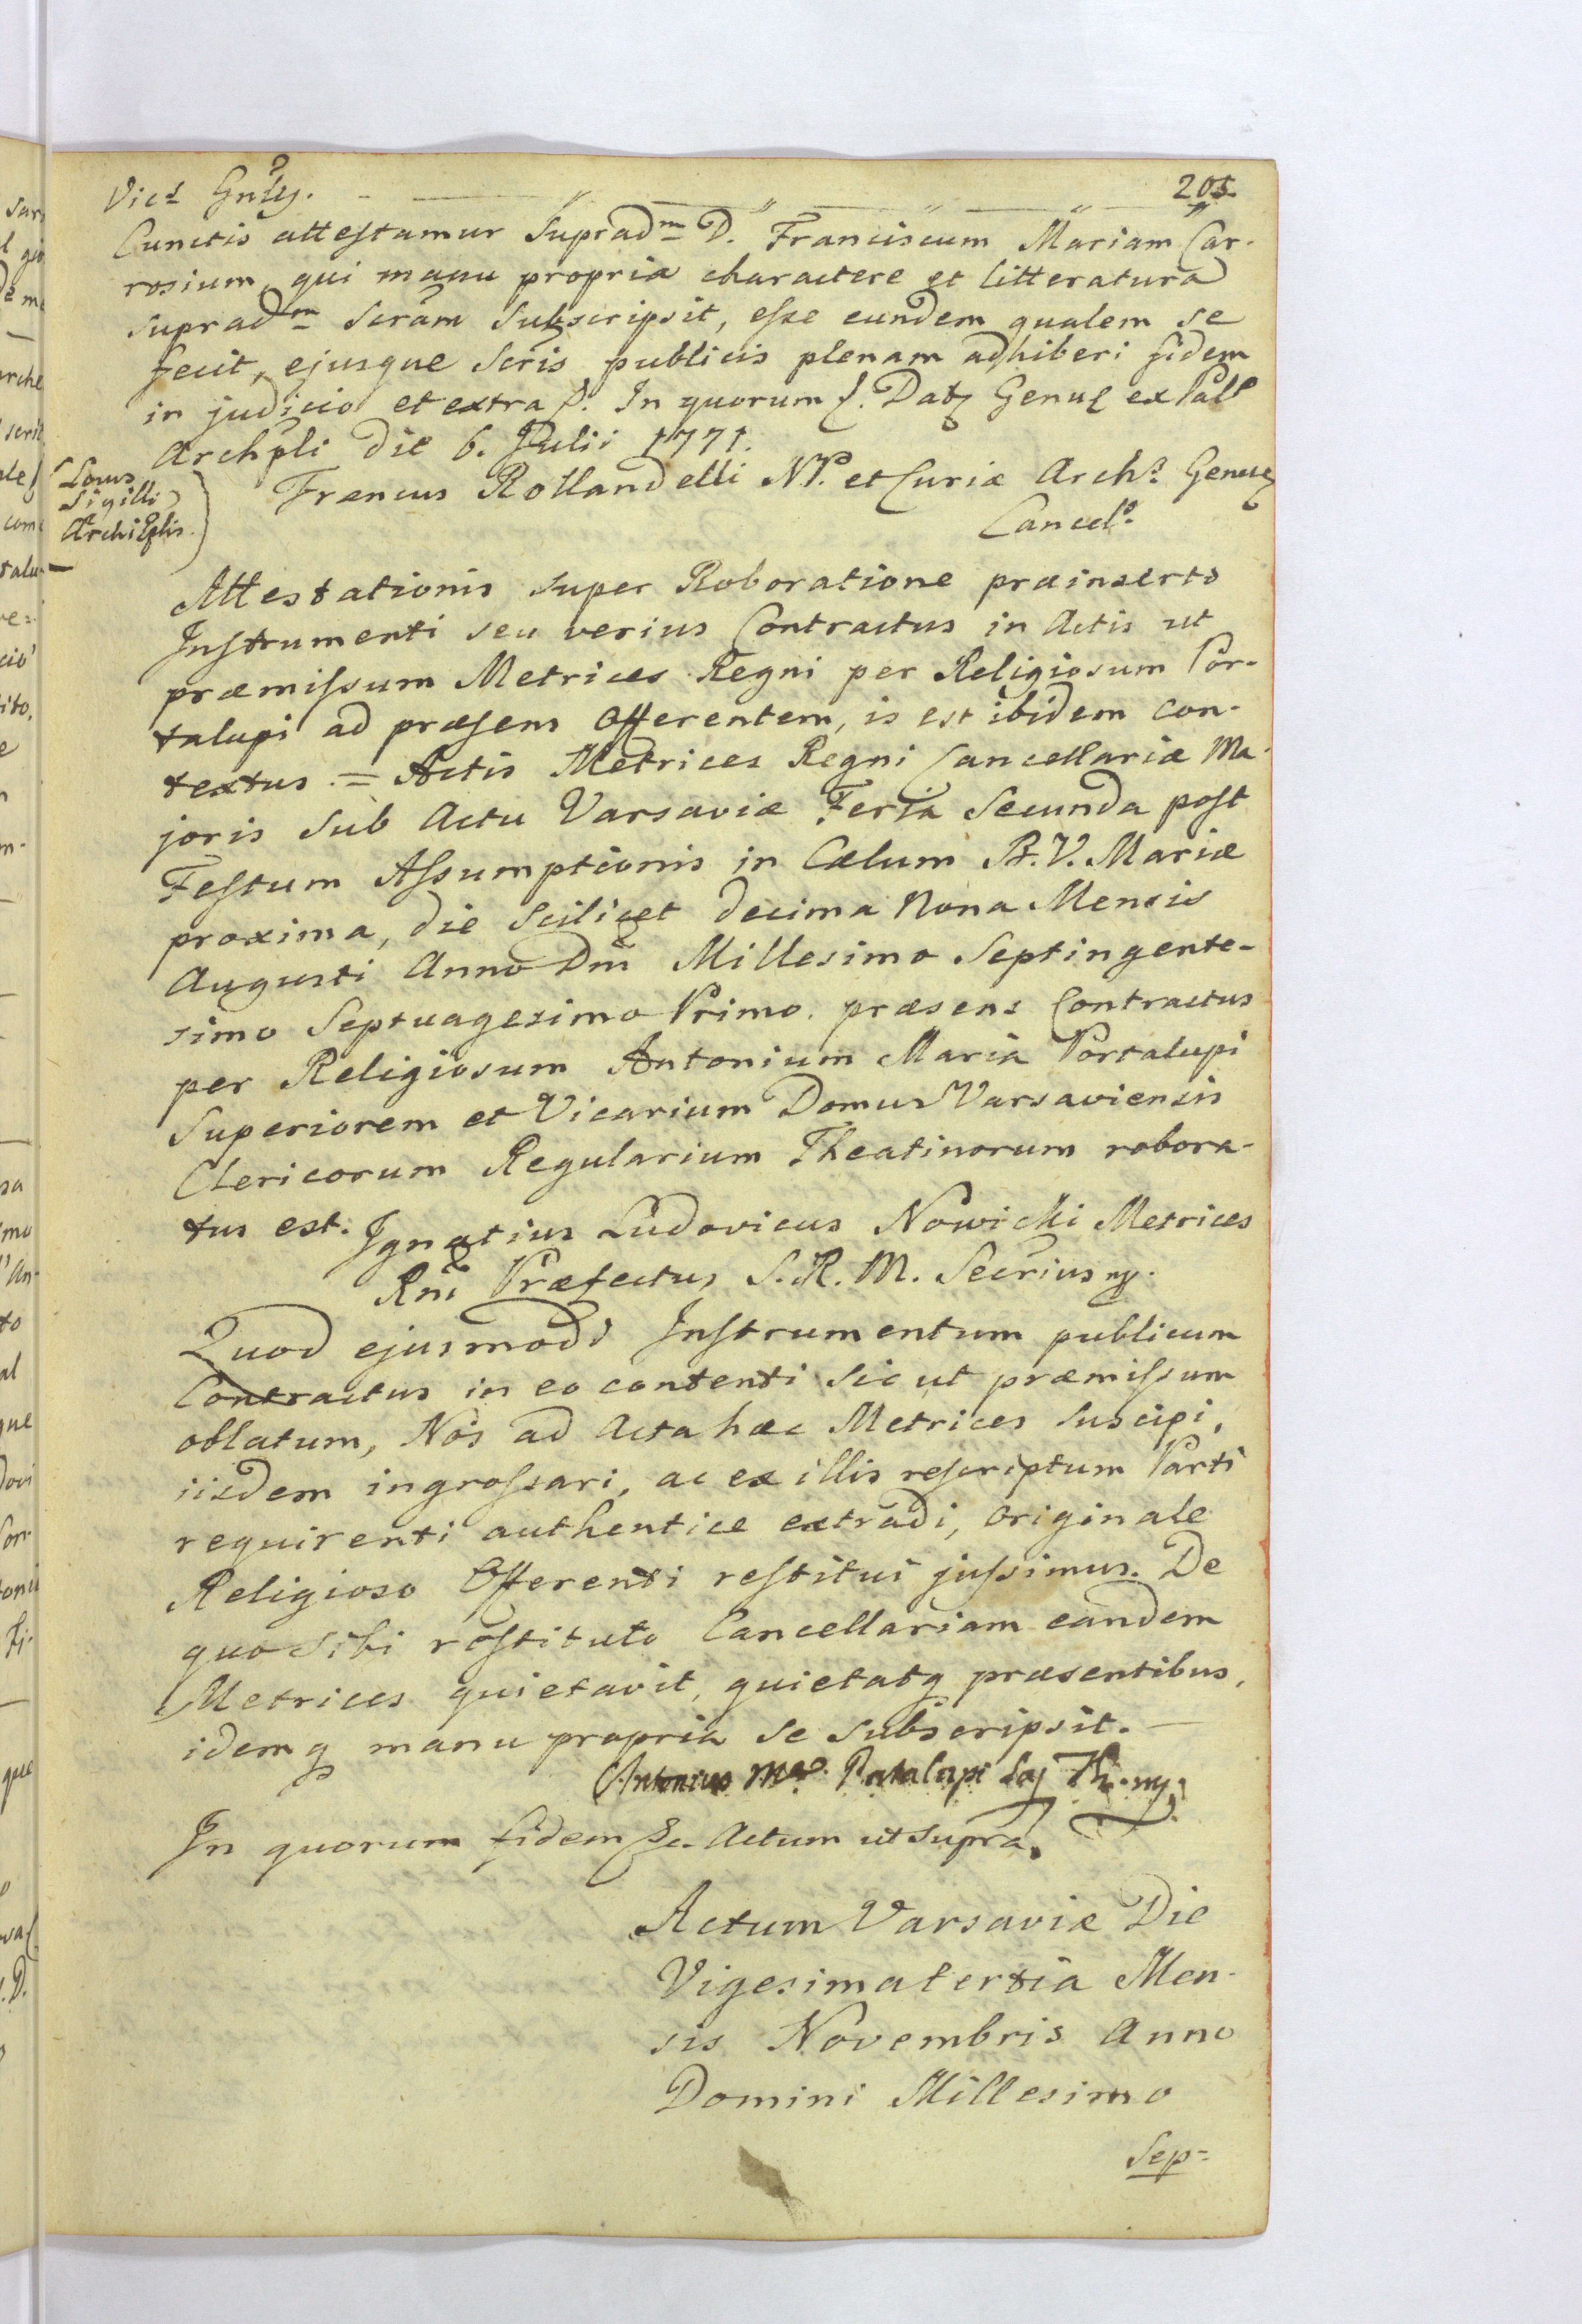 205.
Vics Gnlis.
Cunctis attestamur Supradm D. Franciscum Mariam Car-
rosium, qui manu propria charactere et litteratura
supradm Scram Subscripsit, esse eundem qualem se
fecit, ejusque Scris publicis plenam adhiberi fidem
in judicio et extra In quorum f. Datq Genuę ex Palt
Archpli die 6. Julii 1771.
Locus
Sigilli
ArchiEplis.
Francus Rollandelli N.P. et Curiæ Archs Genuę
Cancels
Attestationis super Roboratione præinserto
Instrumenti seu verius Contractus in Actis ut
præmissum Metrices Regni per Religiosum Por-
talupi ad præsens Offerentem, is est ibidem con-
textus = Actis Metrices Regni Cancellariæ Ma-
joris sub Actu Varsaviæ Feria Secunda post
Festum Assumptionis in Cælum B. V. Mariæ
proxima, die Scilicet decima Nona Mensis
Augusti Anno Dni Millesimo Septingente-
simo Septuagesimo Primo. præsens Contractus
per Religiosum Antonium Maria Portalupi
Superiorem et Vicarium Domus Varsaviensis
Clericorum Regularium Theatinorum robora-
tus est. Ignatius Ludovicus Nowicki Metrices
Rni Præfectus, S. R. M. Secrius mp.
Quod ejusmodi Instrumentum publicum
Contractus in eo contenti sic ut præmissum
oblatum, Nos ad Acta hæc Metrices suscipi,
iisdem ingrossari, ac ex illis rescriptum Parti
requirenti authentice extradi, originale
Religioso Offerenti restitui jussimus. De
quo Sibi restituto Cancellariam eandem
Metrices quietavit, quietatq præsentibus,
idemq manu propria se subscripsit.
Antonius Ma. Portalupi Th. mp.
In quorum fidem &c. Actum ut supra.
Actum Varsaviæ Die
Vigesima tertia Men-
sis Novembris Anno
Domini Millesimo
Sep-